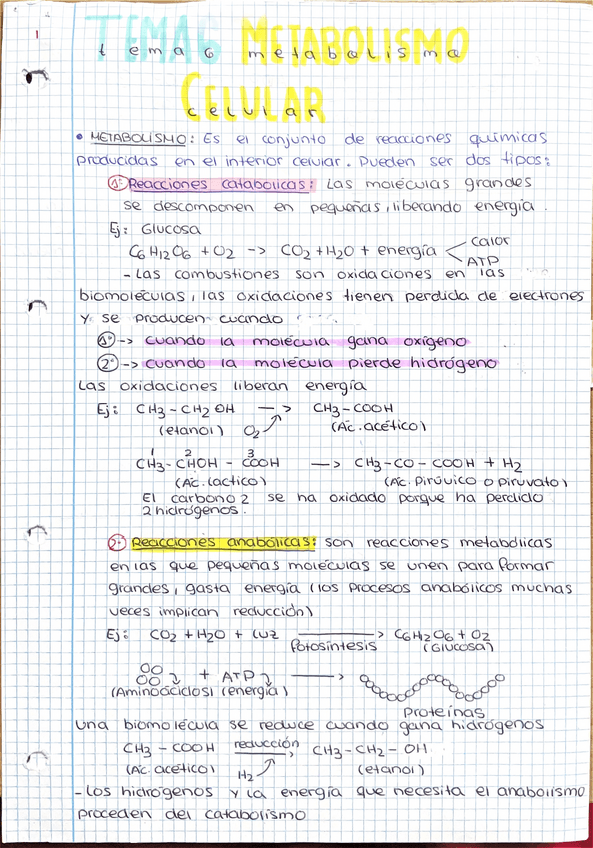 1
TEMA 6 METABOLISMO
tema 6 metabolismo
CELULAR
celular
• METABOLISMO: Es el conjunto de reacciones químicas
producidas en el interior celular. Pueden ser dos tipos:
1º Reacciones catabolicas: Las moléculas grandes
se descomponen en pequeñas, liberando energía.
Ej: Glucosa
C6 H12 O6 + O2 -> CO2 + H2O + energía < calor
ATP
- Las combustiones son oxidaciones en las
biomoléculas, las oxidaciones tienen perdida de electrones
y se producen cuando
1º -> cuando la molécula gana oxígeno
2º -> cuando la molécula pierde hidrógeno
Las oxidaciones liberan energía
Ej: CH3 - CH2 OH —> CH3 - COOH
(etanol) O2 (Ác. acético)
1 2 3
CH3 - CHOH - COOH —> CH3 - CO - COOH + H2
(Ác. lactico) (Ác. Pirúvico o piruvato)
El carbono 2 se ha oxidado porque ha perdido
2 hidrógenos.
2º Reacciones anabólicas: son reacciones metabólicas
en las que pequeñas moléculas se unen para formar
grandes, gasta energía (los procesos anabólicos muchas
veces implican reducción)
Ej: CO2 + H2O + luz ———> C6H2O6 + O2
Fotosíntesis (Glucosa)
+ ATP ——>
(Aminoácidos) (energía)
Proteínas
Una biomolécula se reduce cuando gana hidrógenos
CH3 - COOH reducción CH3 - CH2 - OH
(Ác. acético) H2 (etanol)
- Los hidrógenos y la energía que necesita el anabolismo
proceden del catabolismo